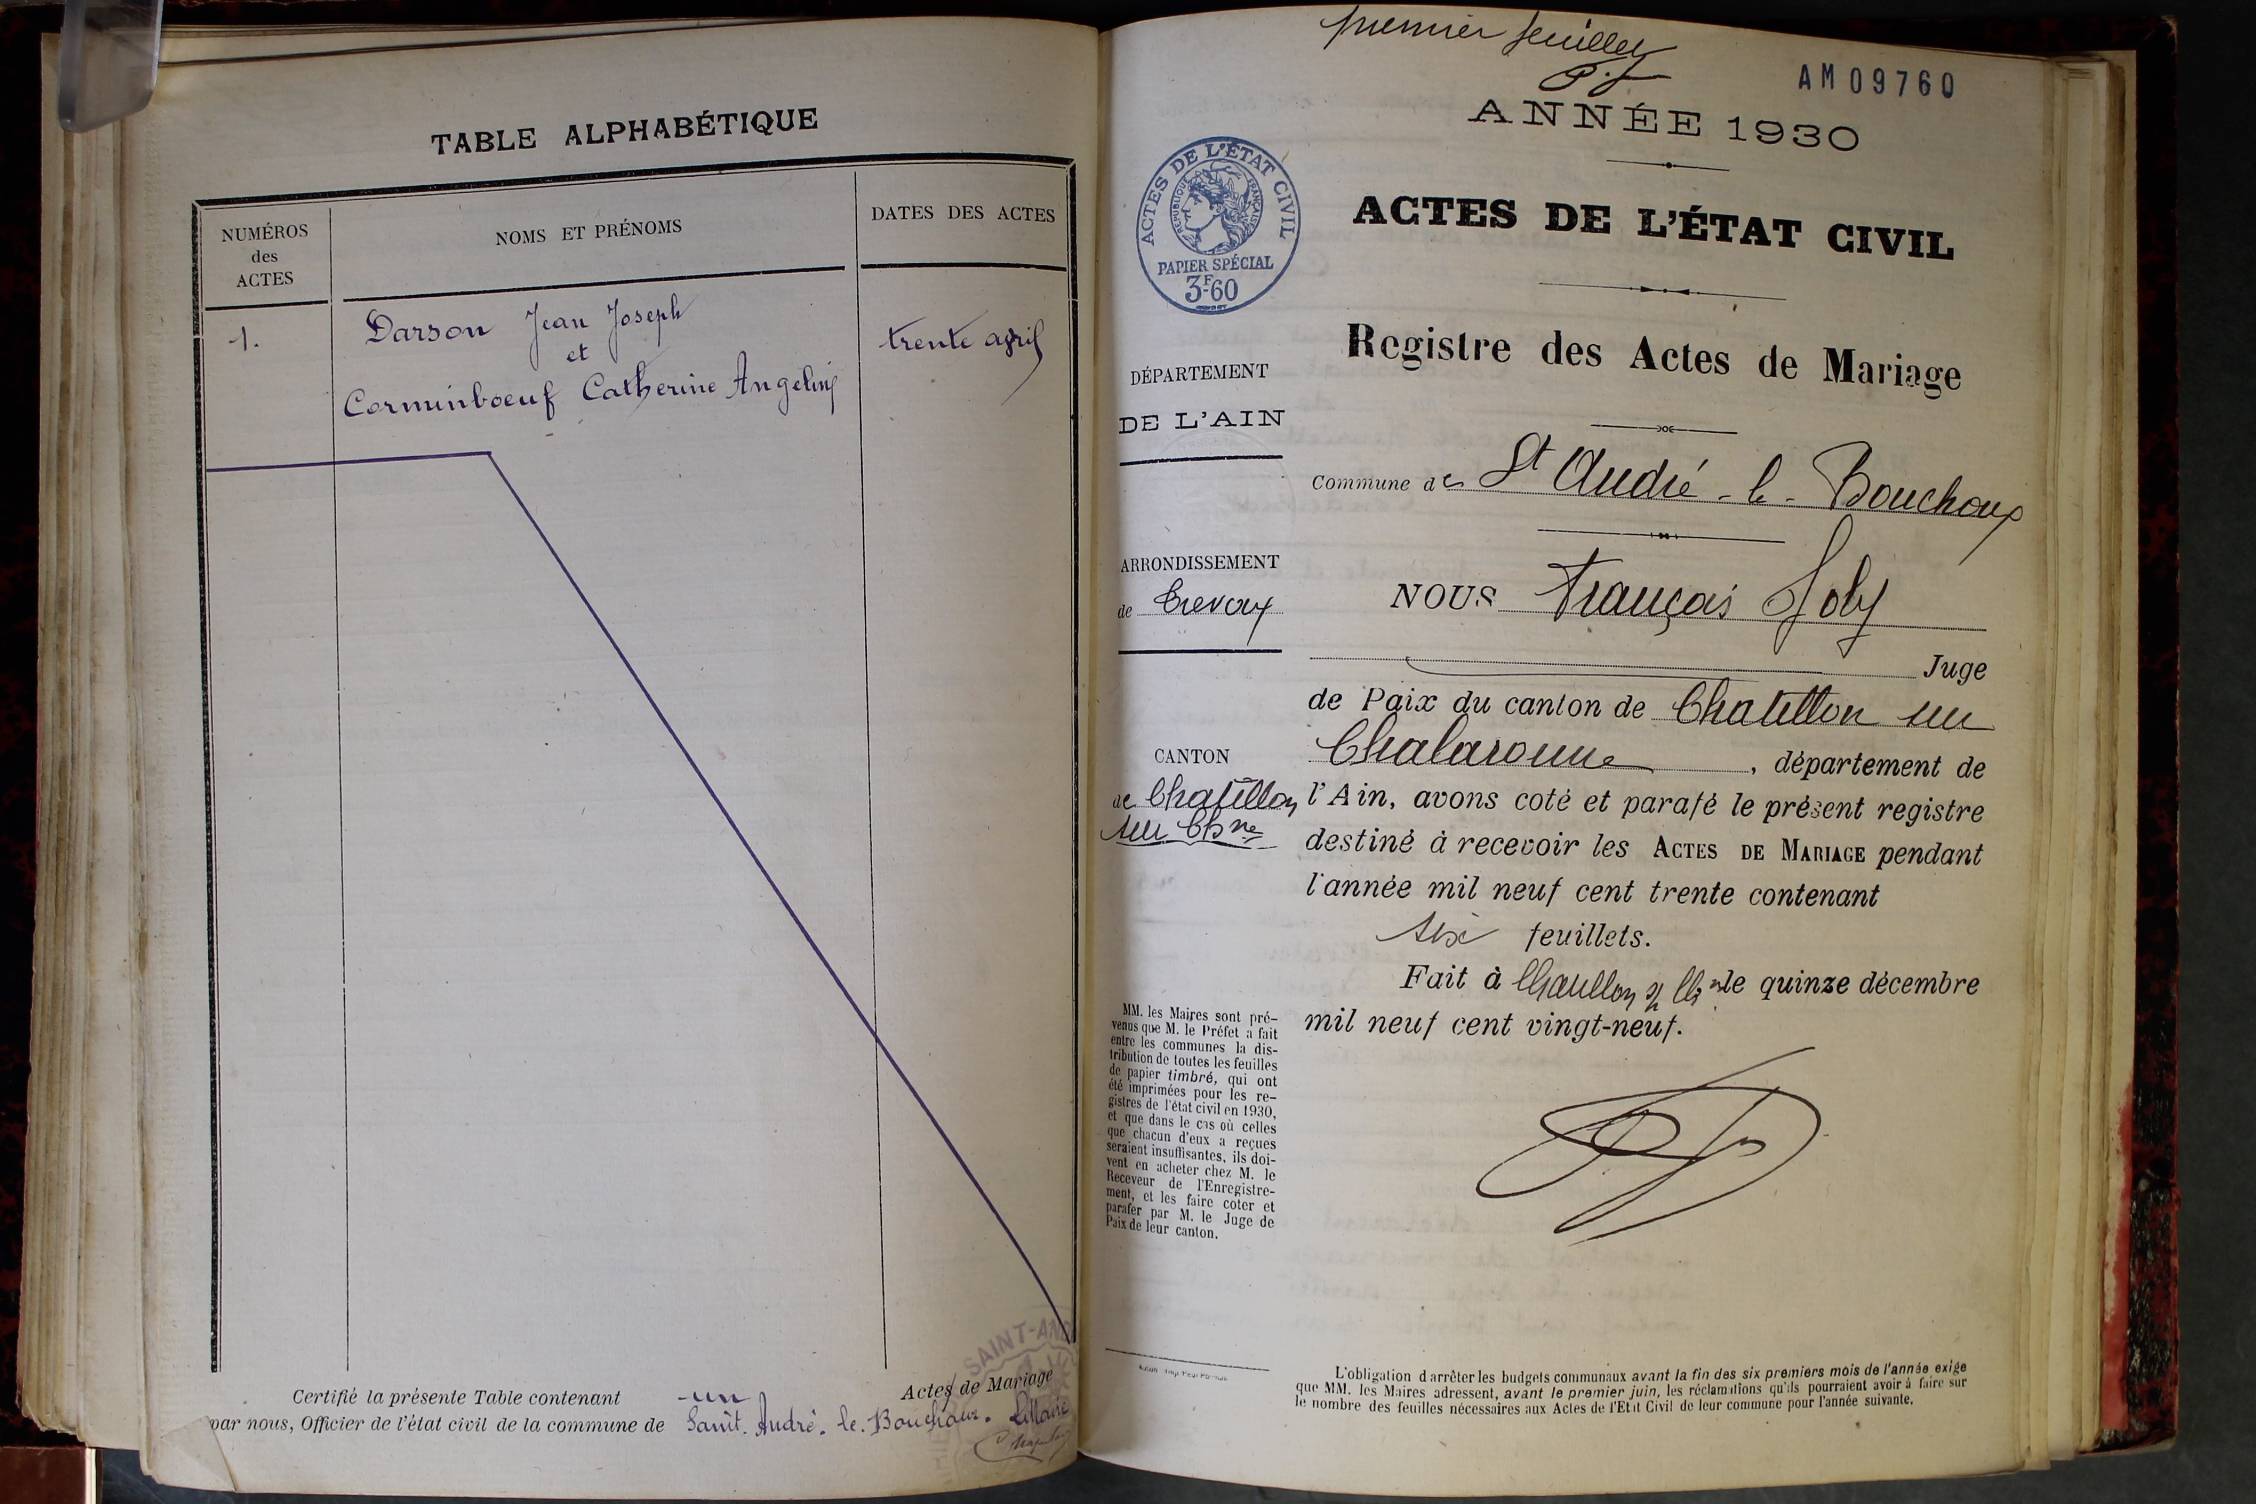 TABLE ALPHABÉTIQUE
NUMÉROS
des
ACTES
NOMS ET PRÉNOMS
DATES DES ACTES
1.
Darson Jean Joseph
et
Corminboeuf Catherine Angeline
trente avril
Certifié la présente Table contenant un Actes de Mariage
par nous, Officier de l'état civil de la commune de Saint-André-le-Bouchoux. Le Maire
SAINT-AND
premier feuillet
AM09760
ANNÉE 1930
ACTES DE L'ÉTAT CIVIL
RÉPUBLIQUE FRANÇAISE
PAPIER SPÉCIAL
3F-60
ACTES DE L'ÉTAT CIVIL
Registre des Actes de Mariage
DÉPARTEMENT
DE L'AIN
Commune de St André-le-Bouchoux
ARRONDISSEMENT
de Trevoux
NOUS François Joly
Juge
de Paix du canton de Chatillon sur
Chalaronne, département de
CANTON
de Chatillon
sur Chne
l'Ain, avons coté et parafé le présent registre
destiné à recevoir les ACTES DE MARIAGE pendant
l'année mil neuf cent trente contenant
six feuillets.
Fait à Chatillon s/ Chne le quinze décembre
mil neuf cent vingt-neuf.
MM. les Maires sont pré-
venus que M. le Préfet a fait
entre les communes la dis-
tribution de toutes les feuilles
de papier timbré, qui ont
été imprimées pour les re-
gistres de l'état civil en 1930,
et que dans le cas où celles
que chacun d'eux a reçues
seraient insuffisantes, ils doi-
vent en acheter chez M. le
Receveur de l'Enregistre-
ment, et les faire coter et
parafer par M. le Juge de
Paix de leur canton.
L'obligation d'arrêter les budgets communaux avant la fin des six premiers mois de l'année exige
que MM. les Maires adressent, avant le premier juin, les réclamations qu'ils pourraient avoir à faire sur
le nombre des feuilles nécessaires aux Actes de l'Etat Civil de leur commune pour l'année suivante.